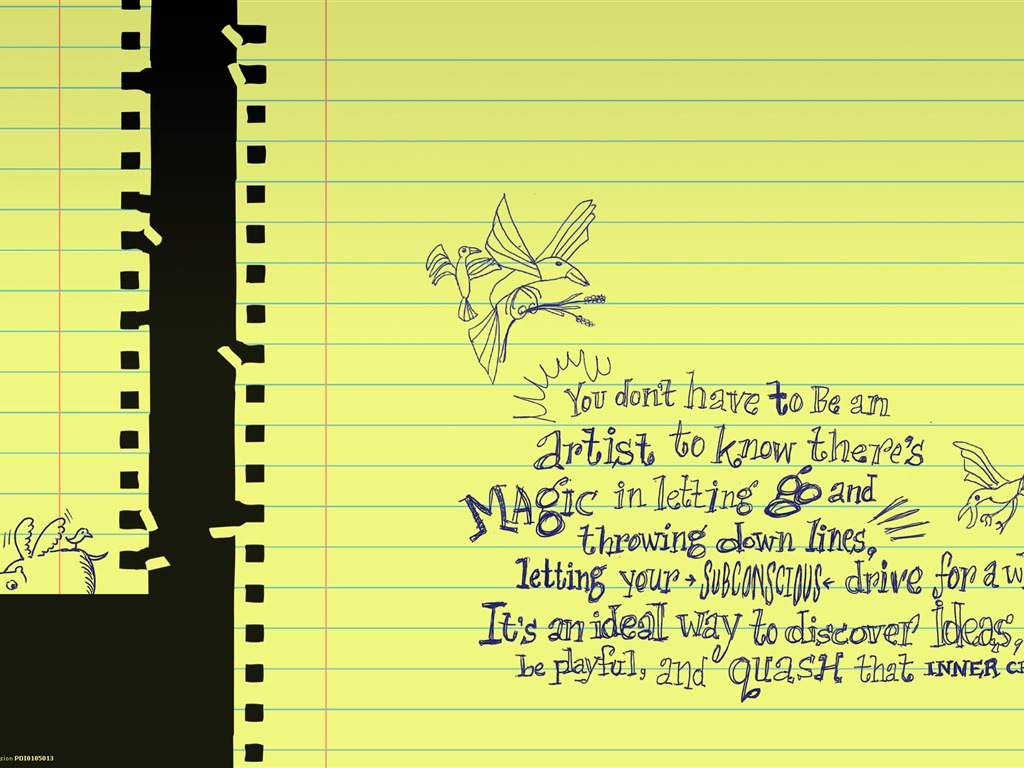 You don't have to Be an
artist to know there's
MAgic in letting go and
throwing down lines,
letting your → SUBCONSCIOUS ← drive for a
It's an ideal way to discover ideas,
be playful, and quash that INNER
PDI0105013